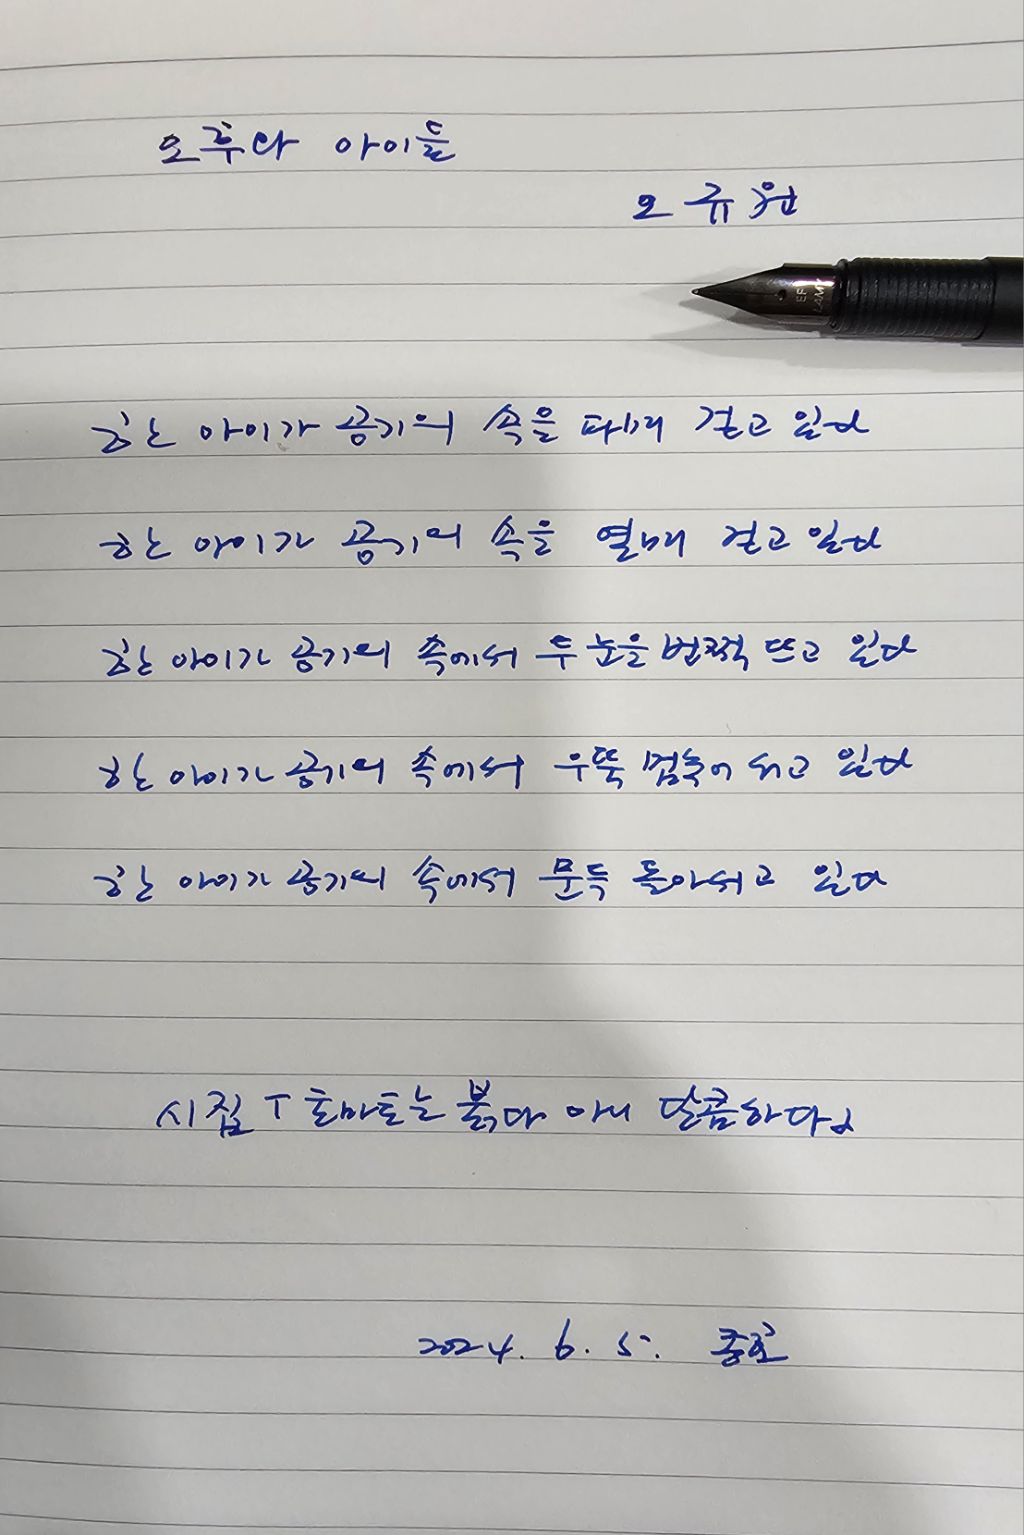 오후와 아이들
오규원
EF
LAMY
한 아이가 공기의 속을 파내며 걷고 있다
한 아이가 공기의 속을 열며 걷고 있다
한 아이가 공기의 속에서 두 눈을 번쩍 뜨고 있다
한 아이가 공기의 속에서 우뚝 멈추어 서고 있다
한 아이가 공기의 속에서 문득 돌아서고 있다
시집 「토마토는 붉다 아니 달콤하다」
2024. 6. 5.